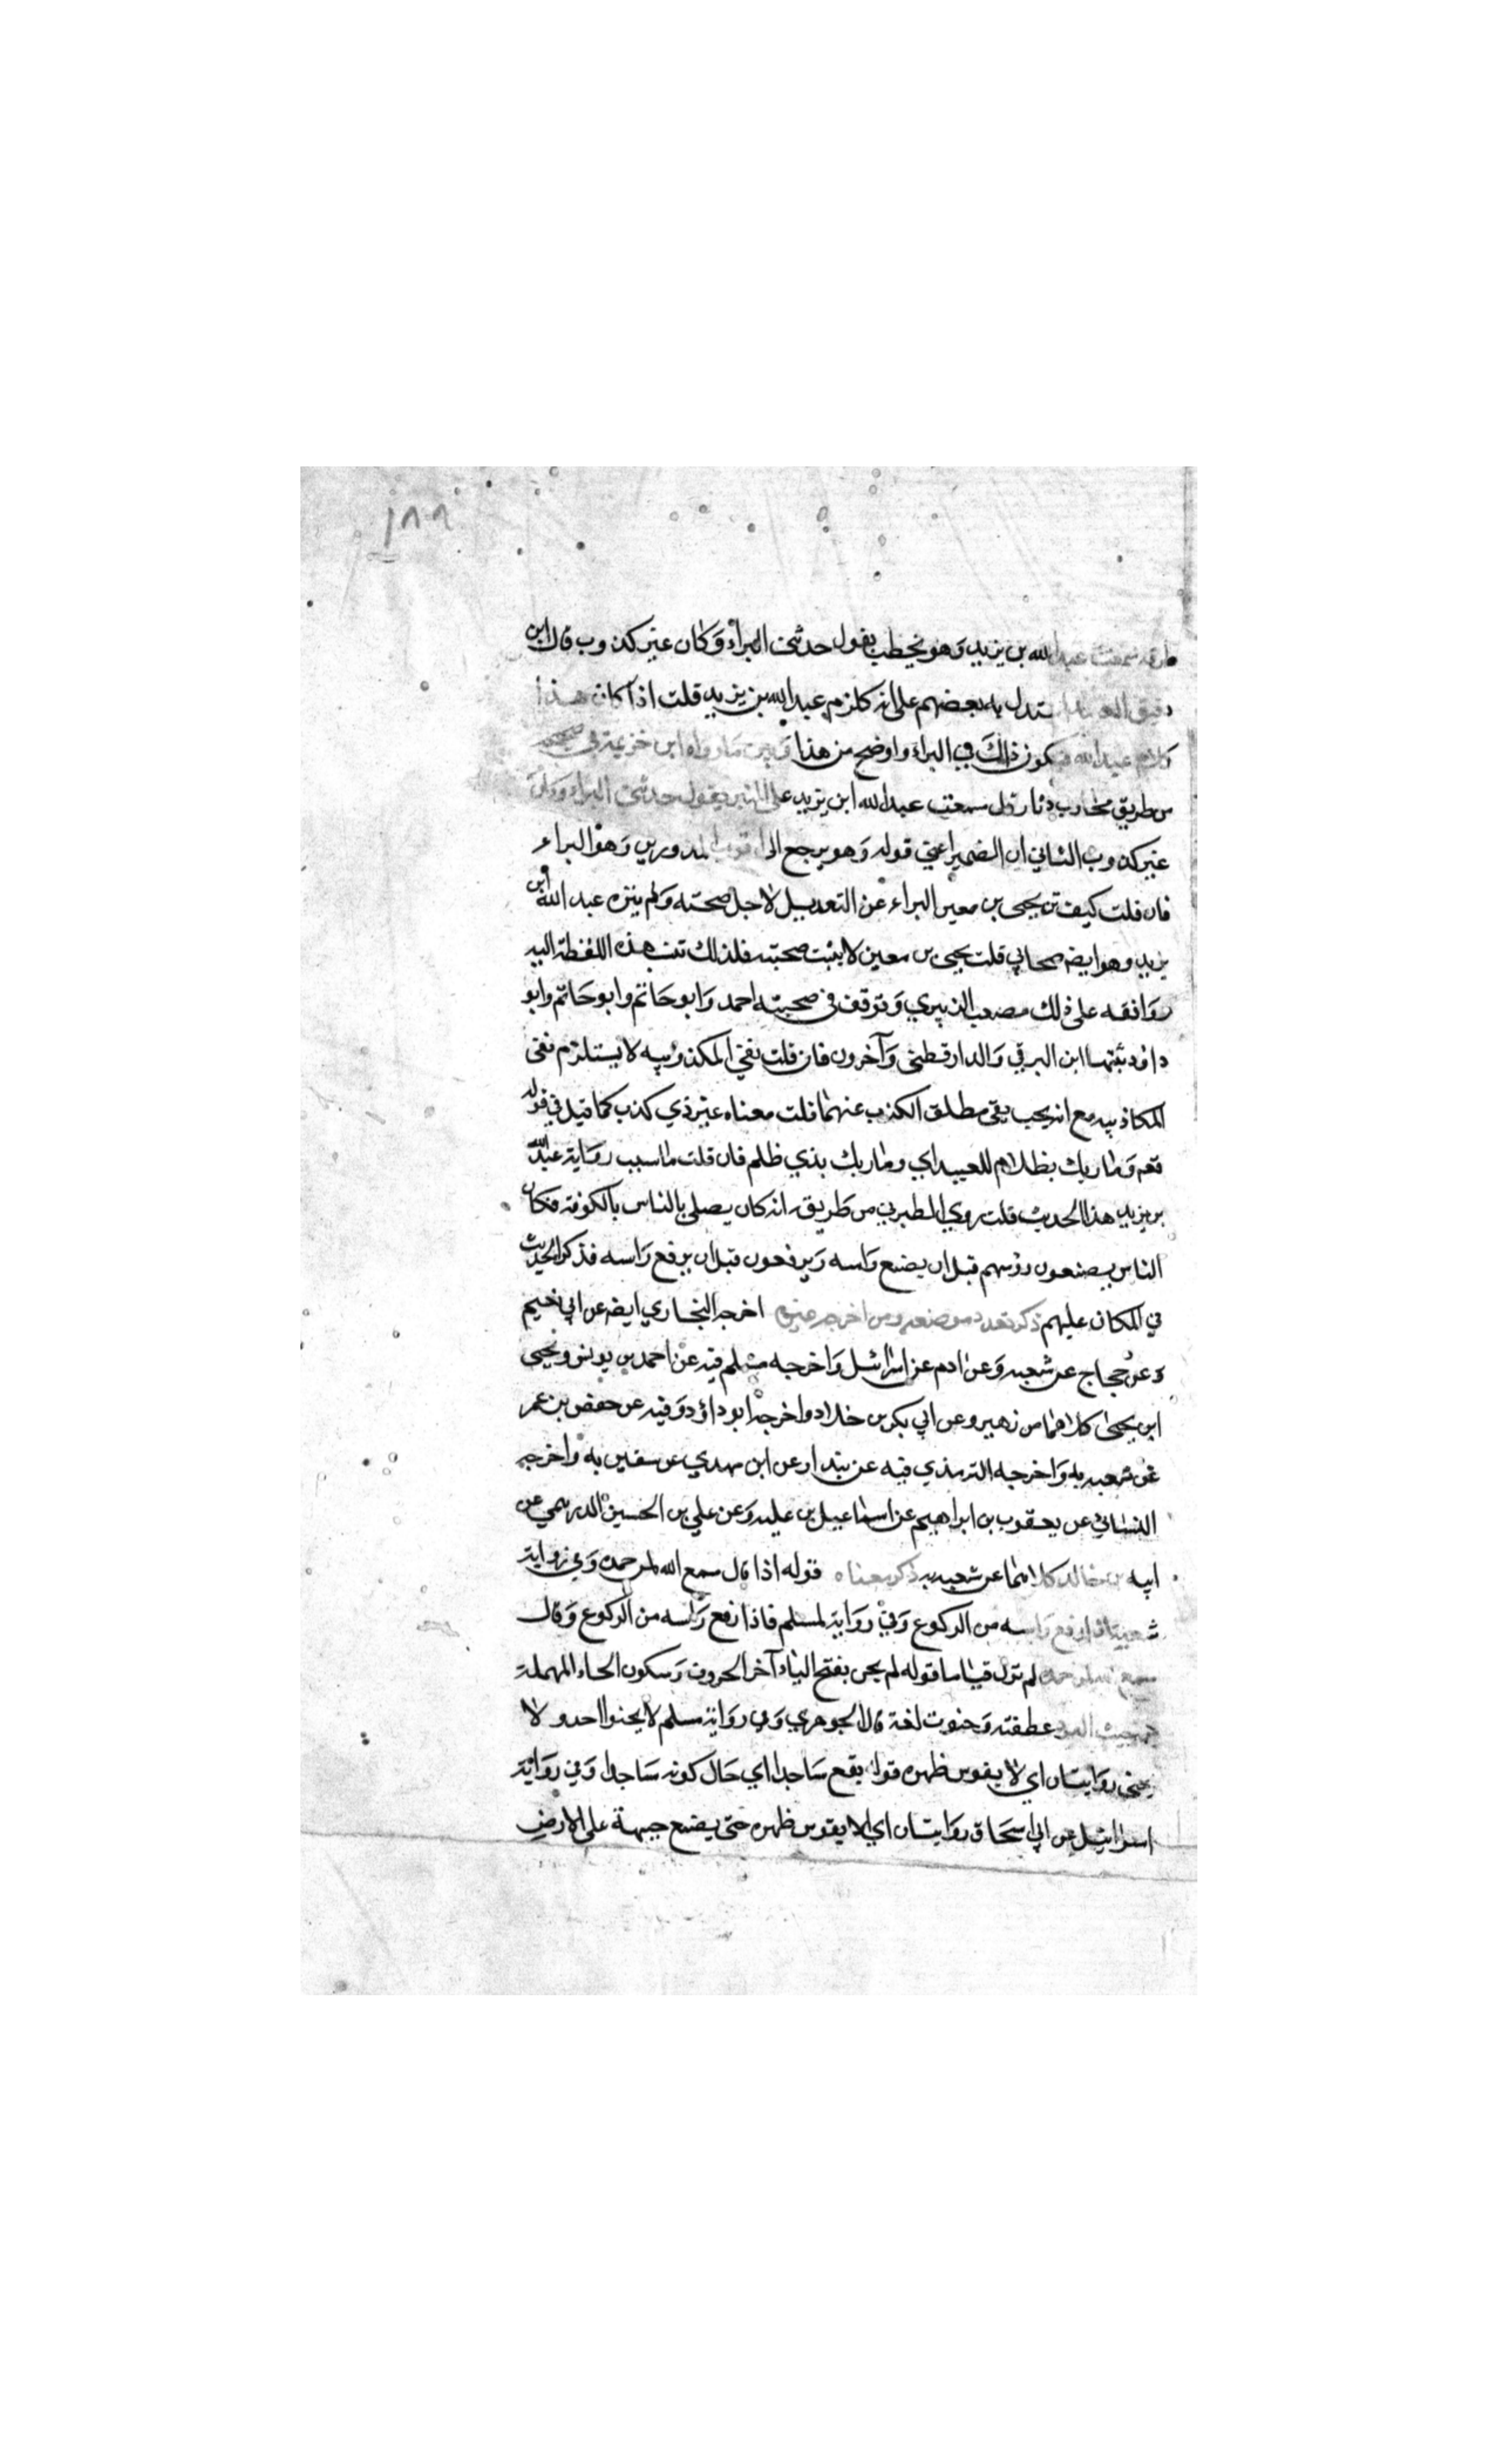 ١٨٨
طرقه سمعت عبد الله بن يزيد وهو يخطب يقول حدثنى البراء وكان غير كذوب قال ابن
دقيق العيد استدل به بعضهم على انه كلام عبد الله بن يزيد قلت اذا كان هذا
كلام عبد الله فيكون ذلك في البراء واوضح من هذا وابين ما رواه ابن خزيمة في صحيحه
من طريق محارب دثار قال سمعت عبد الله ابن يزيد على المنبر يقول حدثنى البراء وكان
غير كذوب الثاني ان الضمير اعني قوله وهو يرجع الى اقرب المذكورين وهو البراء
فان قلت كيف نزه يحيى بن معين البراء عن التعديل لاجل صحبته ولم ينزه عبد الله ابن
يزيد وهو ايضه صحابي قلت يحيى بن معين لا يثبت صحبته فلذلك تنسب هذه اللفظة اليه
ووافقه على ذلك مصعب الزبيري وتوقف في صحبته احمد وابو حاتم وابو حاتم وابو
داود ثبتها ابن البرقي والدارقطني وآخرون فان قلت نفي المكذوبيه لا يستلزم نفى
المكاذبيه مع انه يجب نفى مطلق الكذب عنهما قلت معناه غير ذي كذب كما قيل في قوله
تعم وما ربك بظلام للعبيد اي وما ربك بذي ظلم فان قلت ما سبب رواية عبد الله
بن يزيد هذا الحديث قلت روي الطبرني من طريقه انه كان يصلي بالناس بالكوفة فكان
الناس يصنعون رؤسهم قبل ان يضع راسه ويرفعون قبل ان يرفع راسه فذكر الحديث
في المكان عليهم ذكر تعدد موضعه ومن اخرجه غيره اخرجه البخاري ايضه عن ابي نعيم
وعن حجاج عن شعبه وعن ادم عن اسرائيل واخرجه مسلم فيه عن احمد بن يونس ويحيى
ابن يحيى كلاهما من زهير وعن ابي بكر بن خلاد واخرجه ابو داؤد وفيه عن حفص بن عمر
عن شعبه به واخرجه الترمذي فيه عن بندار عن ابن مهدي عن سفين به واخرجه
النسائي عن يعقوب بن ابراهيم عن اسماعيل بن عليه وعن علي بن الحسين الدرهمي عن
ابيه بن خالد كلاهما عن شعبه به ذكر معناه قوله اذا قال سمع الله لمن حمده وفي رواية
شعبة اذا رفع راسه من الركوع وفي رواية لمسلم فاذا رفع راسه من الركوع وقال
سمع الله لمن حمده لم نزل قياما قوله لم يحن بفتح الياء آخر الحروف وسكون الحاء المهملة
من حنيت العود عطفته وحنوت لغة قال الجوهري وفي رواية مسلم لا يحنوا احد ولا
يحنى روايتان اي لا يقوس ظهره قوله يقع ساجدا اي حال كونه ساجدا وفي رواية
اسرائيل عن ابي اسحاق روايتان اي لا يقوس ظهره حتى يضع جبهة على الارض